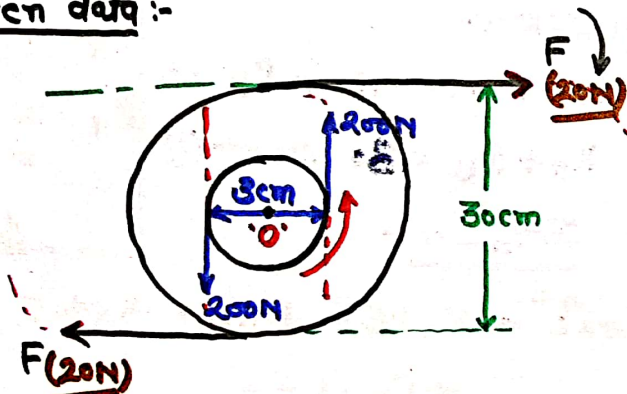 en data :-
F
(20N)
200N
3cm
'O'
30cm
200N
F(20N)